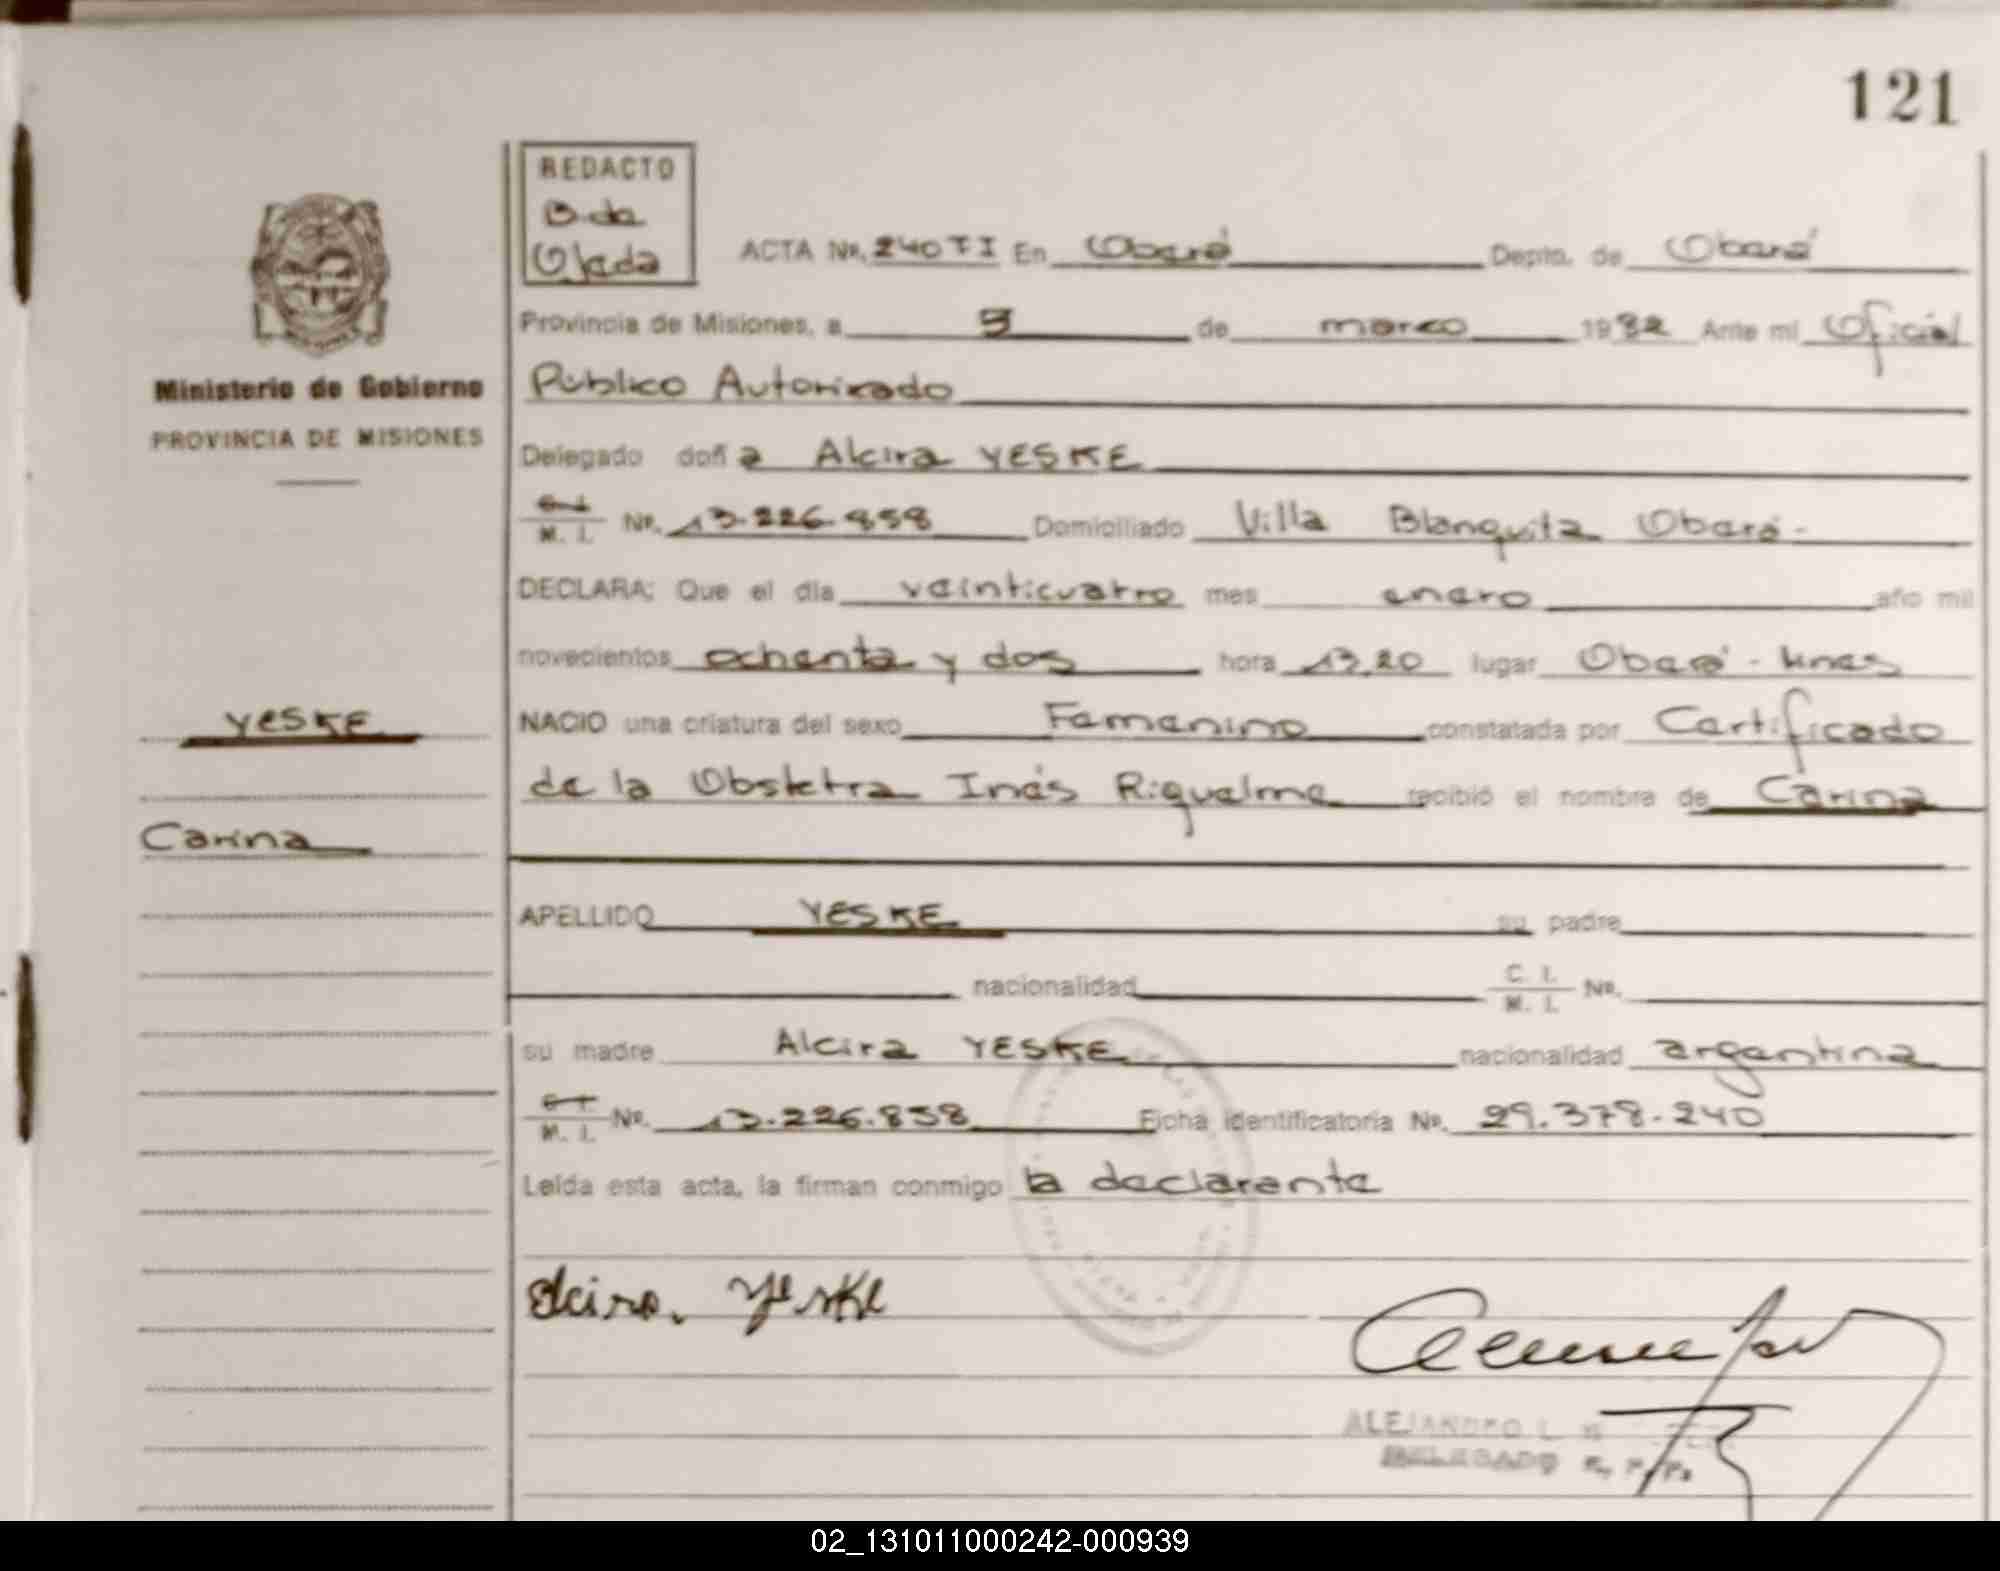 121
REDACTO
B. de
Ojeda
ACTA Nº. 240 TI En Oberá Depto. de Oberá
Ministerio de Gobierno
PROVINCIA DE MISIONES
Provincia de Misiones, a 5 de marzo 1982 Ante mi Oficial
Público Autorizado
Delegado doña Alcira YESKE
M. I. Nº. 13.226.858 Domiciliado Villa Blanquita Oberá-
DECLARA: Que el día veinticuatro mes enero año mil
novecientos ochenta y dos hora 13,20 lugar Oberá-
YESKE
Carina
NACIO una criatura del sexo Femenino constatada por Certificado
de la Obstetra Inés Riquelme recibió el nombre de Carina
APELLIDO YESKE su padre
nacionalidad C. I. M. I. Nº.
su madre Alcira YESKE nacionalidad argentina
M. I. Nº. 13.226.858 Ficha identificatoria Nº. 29.378.240
Leída esta acta, la firman conmigo la declarante
Alcira Yeske
ALEJANDRO L.
DELEGADO
02_131011000242-000939